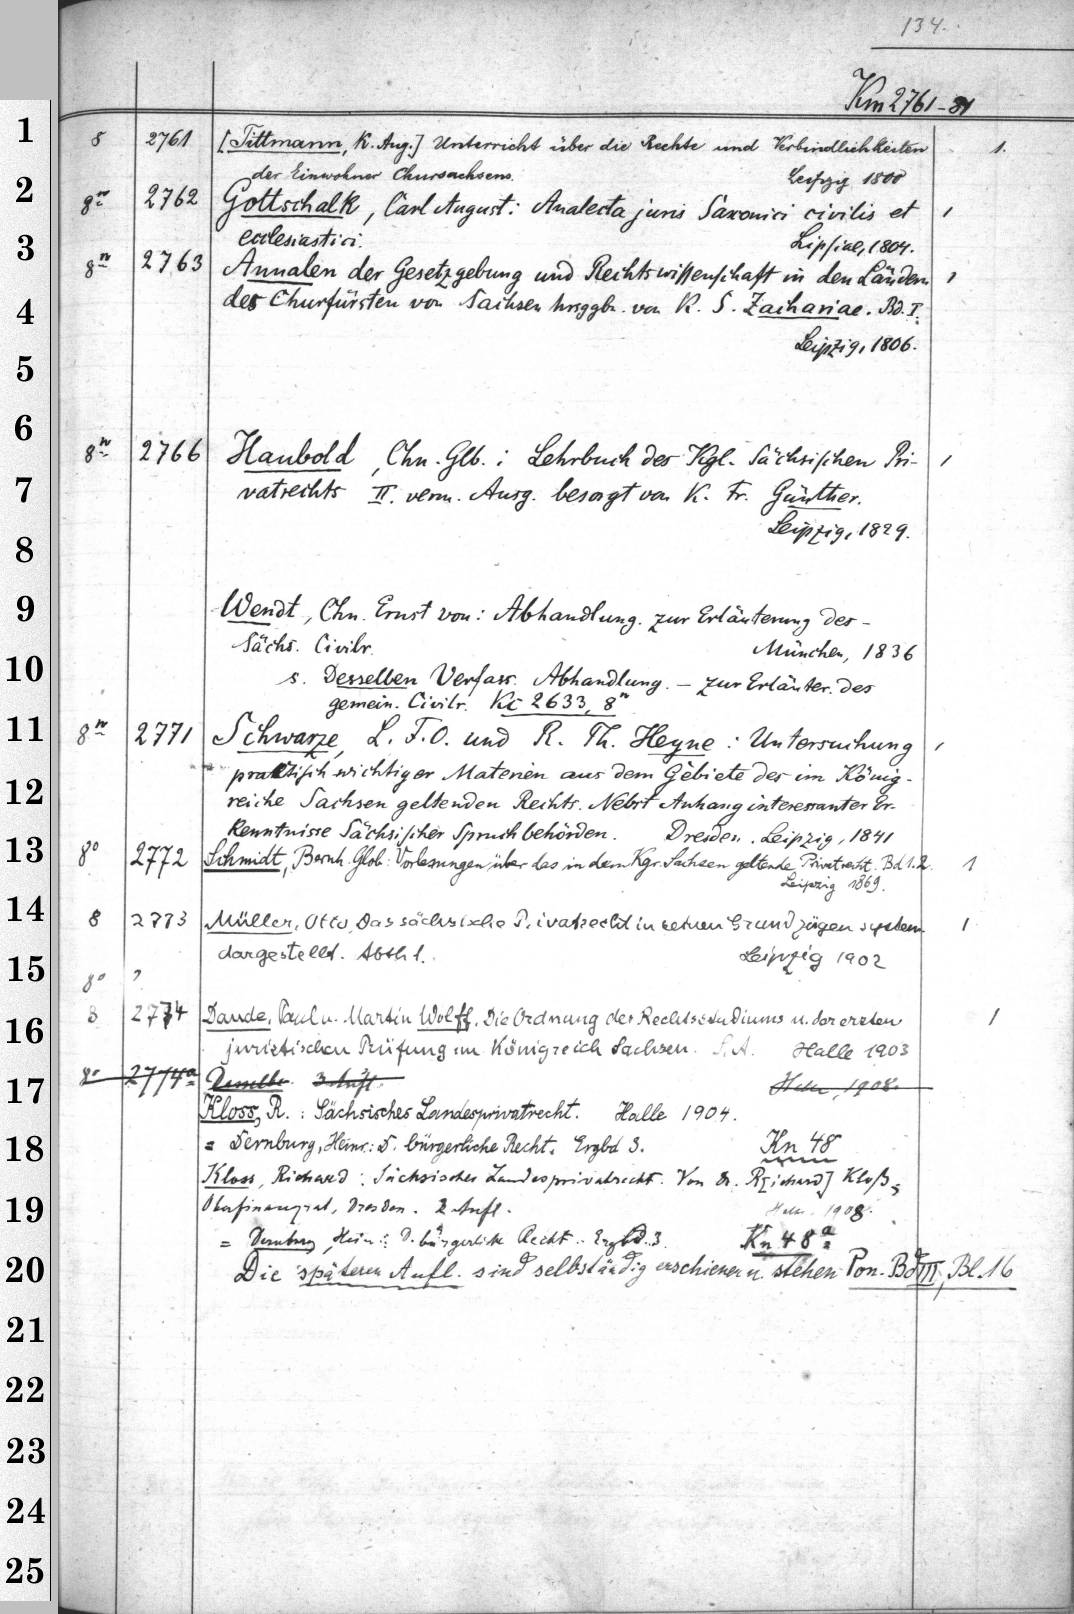 134.
Km 2761-81
1
8 2761 [Tittmann, K. Aug.] Unterricht über die Rechte und Verbindlichkeiten 1.
der Einwohner Chursachsens. Leipzig 1800
2
8n 2762 Gottschalk, Carl August: Analecta juris Saxonici civilis et 1
ecclesiastici. Lipsiae, 1804.
3
8n 2763 Annalen der Gesetzgebung und Rechtswissenschaft in den Ländern 1
des Churfürsten von Sachsen hrsggbn. von K. S. Zachariae. Bd. I.
4
Leipzig, 1806.
5
6
8n 2766 Haubold, Chn. Glb.: Lehrbuch des Kgl. Sächsischen Pri- 1
7
vatrechts II. verm. Ausg. besorgt von K. Fr. Günther.
Leipzig, 1829.
8
9
Wendt, Chn. Ernst von: Abhandlung. zur Erläuterung des -
Sächs. Civilr. München, 1836
10
s. Desselben Verfass. Abhandlung. – zur Erläuter. des
gemein. Civilr. Kc 2633, 8n
11
8n 2771 Schwarze, L. F. O. und R. Th. Heyne: Untersuchung 1
praktisch wichtiger Materien aus dem Gebiete des im König-
12
reiche Sachsen geltenden Rechts. Nebst Anhang interessanter Er-
kenntnisse Sächsischer Spruchbehörden. Dresden. Leipzig, 1841
13
8o 2772 Schmidt, Bernh. Glob: Vorlesungen über das in dem Kgr. Sachsen geltende Privatrecht. Bd 1. 2. 1
Leipzig 1869.
14
8 2773 Müller, Otto, Das sächsische Privatrecht in seinen Grundzügen system. 1
dargestellt. Abth 1. Leipzig 1902
15
8o ?
16
8 2774 Daude, Paul u. Martin Wolff, Die Ordnung des Rechtsstudiums u. der ersten 1
juristischen Prüfung im Königreich Sachsen. S. A. Halle 1903
17
8o 2774a Dasselbe 3 Aufl. Halle, 1908.
Kloss, R.: Sächsisches Landesprivatrecht. Halle 1904.
18
= Dernburg, Heinr.: D. bürgerliche Recht. Ergbd 3. Kn 48
Kloss, Richard: Sächsisches Landesprivatrecht. Von Dr. R[ichard] Kloß,
19
Oberfinanzrat, Dresden. 2 Aufl. Halle 1908.
= Dernburg, Heinr.: D. bürgerliche Recht. Ergbd. 3. Kn 48a
20
Die späteren Aufl. sind selbständig erschienen u. stehen Pon. Bd III, Bl. 16
21
22
23
24
25